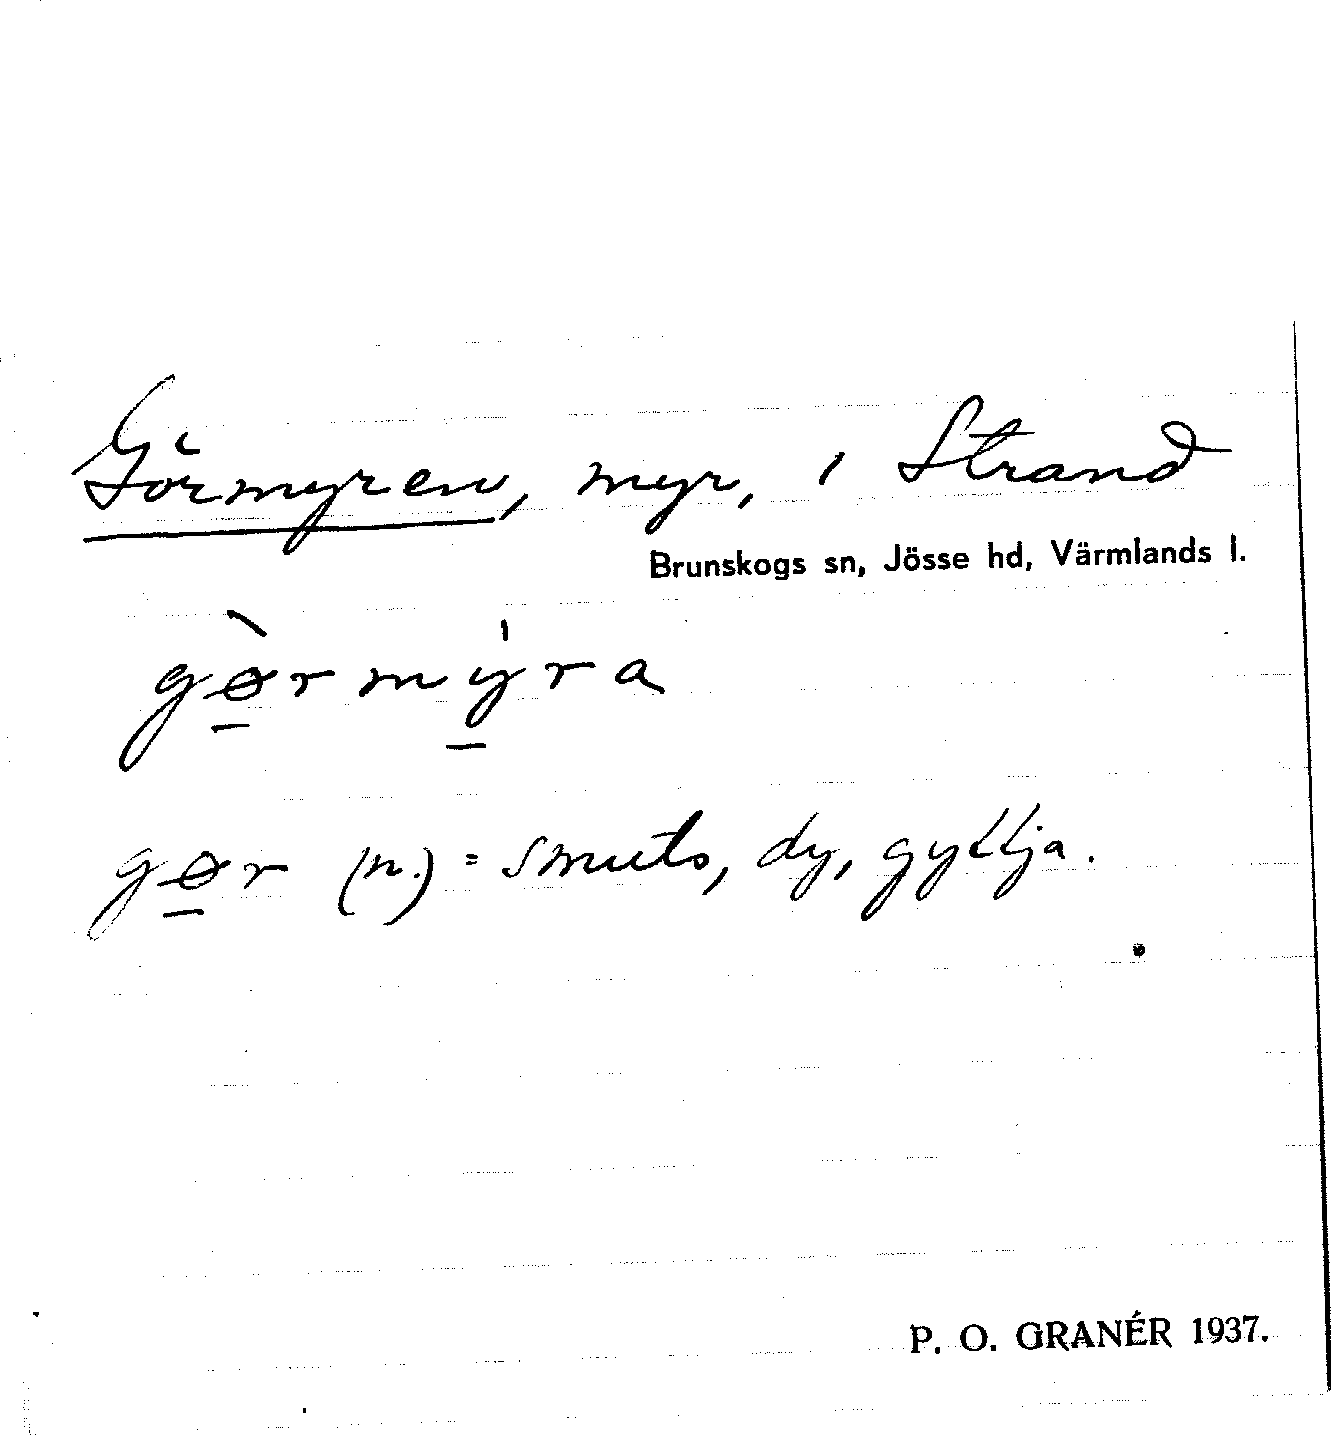 Görmyren, myr, i Strand
Brunskogs sn, Jösse hd, Värmlands l.
gø̱̀rmý̱ra
gø̱r (n.) = smuts, dy, gyttja.
P. O. GRANÉR 1937.